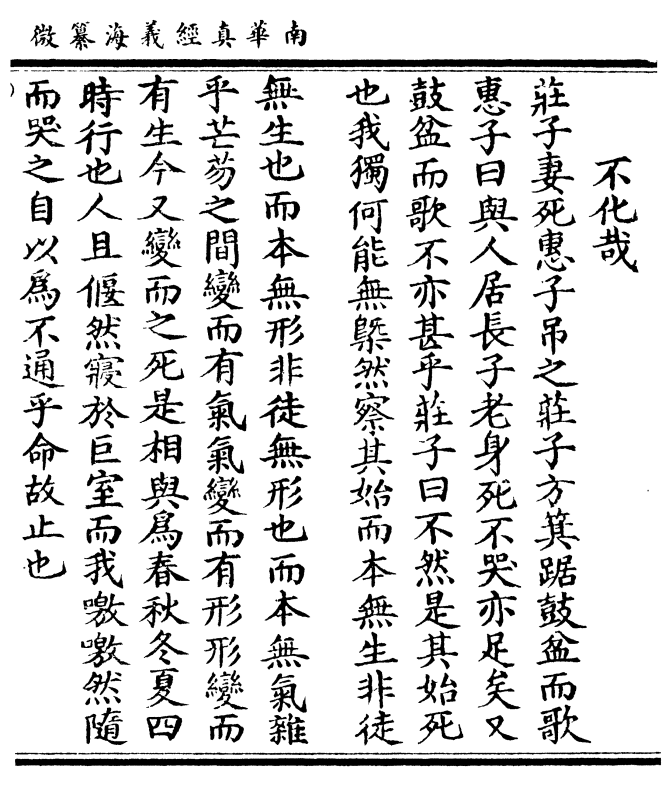 南華真經義海纂微
不化哉
莊子妻死惠子吊之莊子方箕踞鼓盆而歌
惠子曰與人居長子老身死不哭亦足矣又
鼓盆而歌不亦甚乎莊子曰不然是其始死
也我獨何能無槩然察其始而本無生非徒
無生也而本無形非徒無形也而本無氣雜
乎芒芴之間變而有氣氣變而有形形變而
有生今又變而之死是相與為春秋冬夏四
時行也人且偃然寢於巨室而我噭噭然隨
而哭之自以為不通乎命故止也